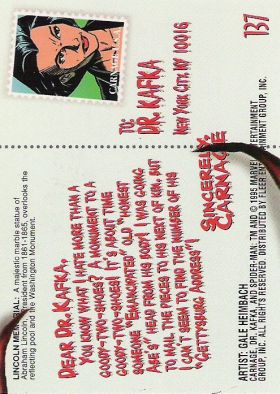 LINCOLN MEMORIAL: A majestic marble statue of
Abraham Lincoln, president from 1861-1865, overlooks the
reflecting pool and the Washington Monument.
DEAR DR. KAFKA,
YOU KNOW WHAT I HATE MORE THAN A
GOODY-TWO-SHOES? A MONUMENT TO A
GOODY-TWO-SHOES! IT'S ABOUT TIME
SOMEONE "EMANCIPATED" OLD "HONEST
ABE'S" HEAD FROM HIS BODY! I WAS GOING
TO MAIL THE PIECES TO HIS NEXT OF KIN, BUT
I CAN'T SEEM TO FIND THE NUMBER OF HIS
"GETTYSBURG ADDRESS"!
SINCERELY,
CARNAGE
TO:
DR. KAFKA
NEW YORK CITY, NY 10016
137
ARTIST: GALE HEIMBACH
CARNAGE, DR. KAFKA, AND SPIDER-MAN: TM AND © 1995 MARVEL ENTERTAINMENT
GROUP, INC. ALL RIGHTS RESERVED. DISTRIBUTED BY FLEER ENTERTAINMENT GROUP, INC.